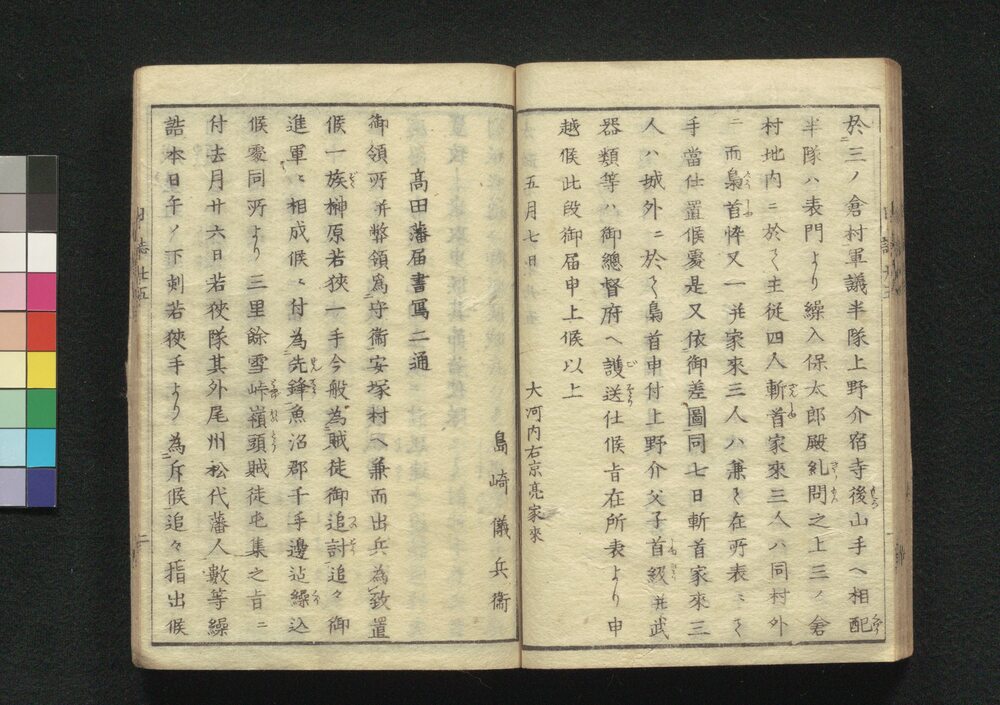 於三ノ倉村軍議半隊上野介宿寺後山手ヘ相配
半隊ハ表門より繰入保太郎殿糺問之上三ノ倉
村地内ニ於て主従四人斬首家來三人ハ同村外
ニ而梟首忰又一并家來三人ハ兼て在所表ニて
手當仕置候處是又依御差圖同七日斬首家來三
人ハ城外ニ於て梟首申付上野介父子首級并武
器類等ハ御總督府ヘ護送仕候旨在所表より申
越候此段御届申上候以上
五月七日
大河内右京亮家來
島崎儀兵衞
髙田藩届書寫二通
御領所并弊領為守衞安塚村ヘ兼而出兵為致置
候一族榊原若狹一手今般為賊徒御追討追々御
進軍ニ相成候ニ付為先鋒魚沼郡千手邊迠繰込
候處同所より三里餘雪峠嶺頭賊徒屯集之旨ニ
付去月廿六日若狹隊其外尾州松代藩人數等繰
詰本日午ノ下刻若狹手より為斥候追々指出候
日誌廿五
二